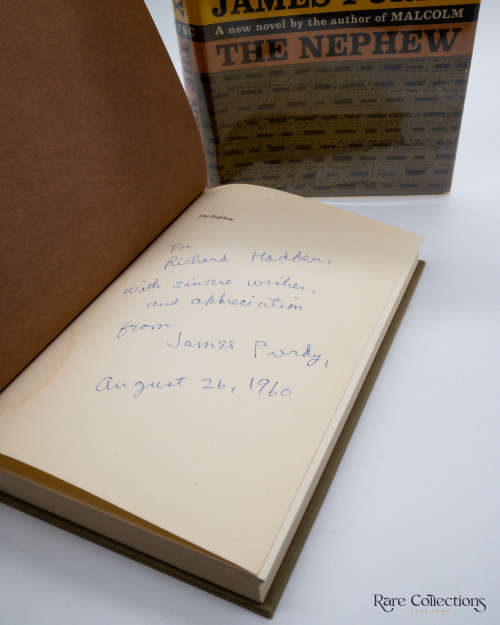 JAMES PURDY
A new novel by the author of MALCOLM
THE NEPHEW
The Nephew
For
Richard Hadden,
with sincere wishes,
and appreciation
from
James Purdy,
August 26, 1960
Rare Collections